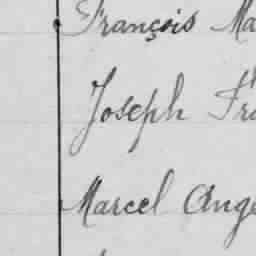 François Ma
Joseph Fra
Marcel Ange